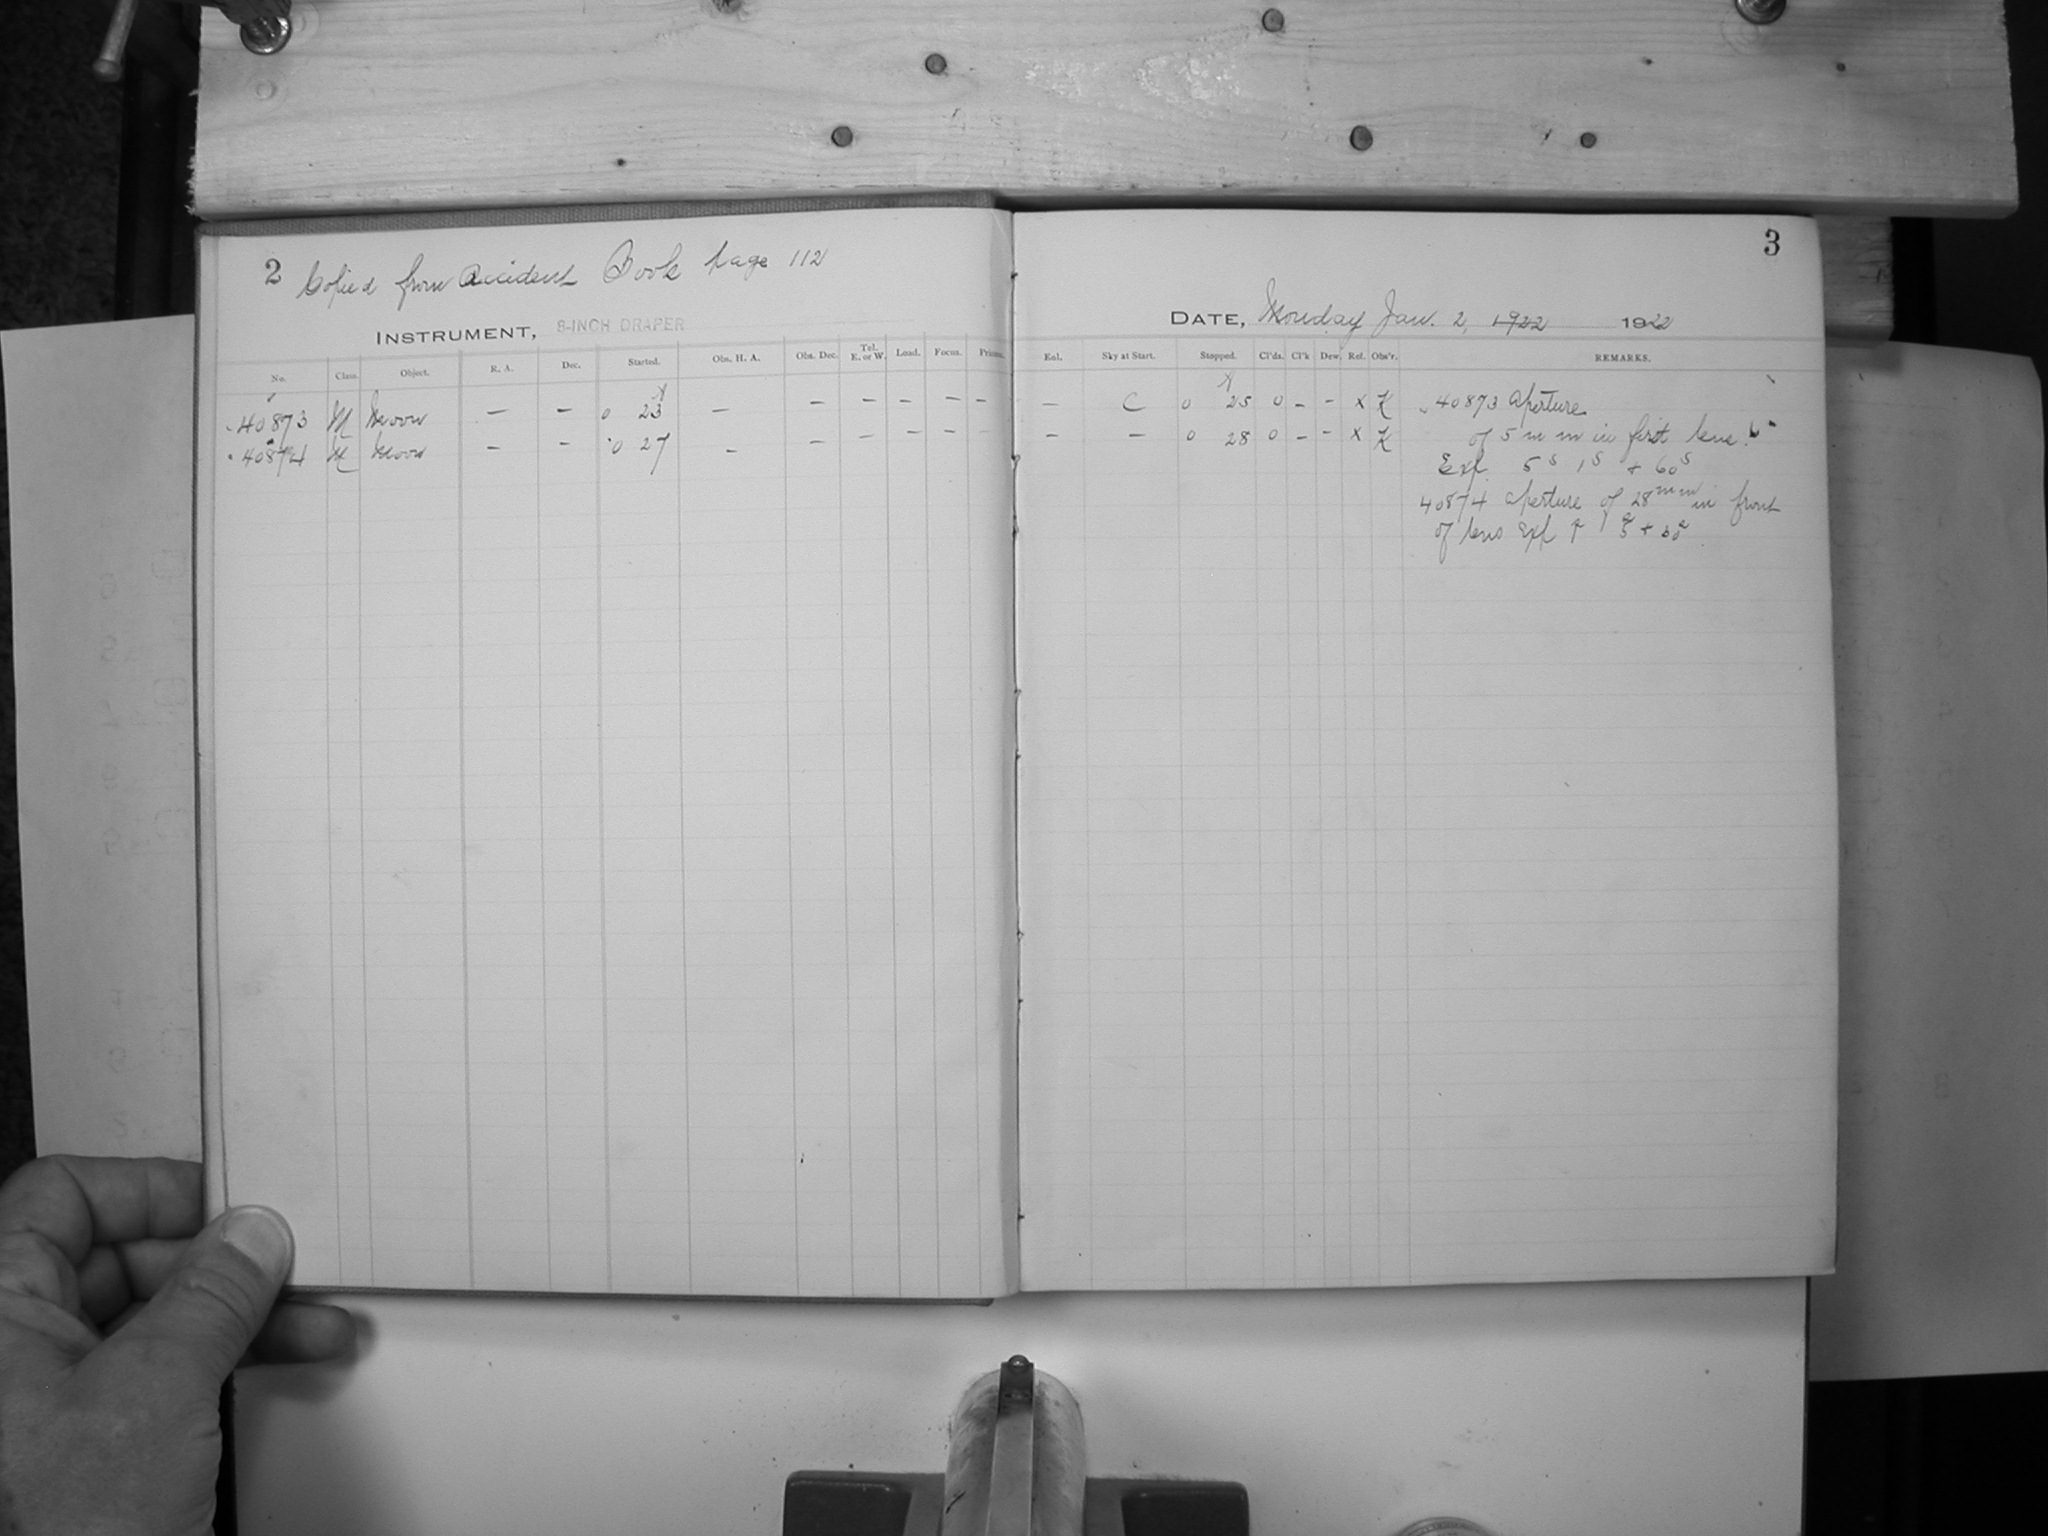 2 Copied from Accident Book page 112
INSTRUMENT, 8-INCH DRAPER
No. Class. Object. R. A. Dec. Started. Obs. H. A. Obs. Dec. Tel. E. or W. Load. Focus. Prisms.
40873 M Moon — — 0 23 — — — — — —
40874 M Moon — — 0 27 — — — — — —
3
DATE, Monday Jan. 2, 1922 1922
Eol. Sky at Start. Stopped. Cl'ds. Cl'k Dew. Ref. Obs'r. REMARKS.
— C 0 25 0 – – x K 40873 Aperture
— — 0 28 0 – – x K of 5 mm in first lens.
Exp. 5s 1s + 60s
40874 aperture of 28mm in front
of lens Exp